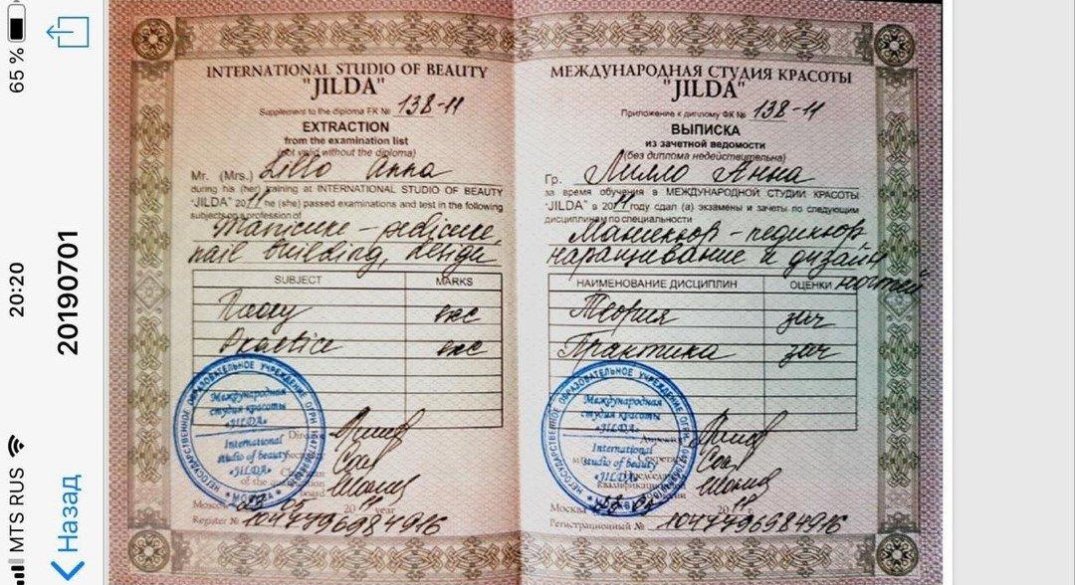 MTS RUS
20:20
65 %
Назад
20190701
INTERNATIONAL STUDIO OF BEAUTY
"JILDA"
Supplement to the diploma FK № 138-11
EXTRACTION
from the examination list
(not valid without the diploma)
Mr. (Mrs.) Lillo Anna
during his (her) training at INTERNATIONAL STUDIO OF BEAUTY
"JILDA" 2011 he (she) passed examinations and test in the following
subjects on a profession of
manicure - pedicure,
nail building, design
SUBJECT MARKS
Practice
НЕГОСУДАРСТВЕННОЕ ОБРАЗОВАТЕЛЬНОЕ УЧРЕЖДЕНИЕ ОГРН
Международная
студия красоты
«JILDA»
International
studio of beauty
«JILDA»
МОСКВА
of the
board
Moscow 20 11 year
Register № 1047796984916
МЕЖДУНАРОДНАЯ СТУДИЯ КРАСОТЫ
"JILDA"
Приложение к диплому ФК № 138-11
ВЫПИСКА
из зачетной ведомости
(без диплома недействительна)
Гр. Лилло Анна
за время обучения в МЕЖДУНАРОДНОЙ СТУДИИ КРАСОТЫ
"JILDA" в 2011 году сдал (а) экзамены и зачеты по следующим
дисциплинам по специальности
Маникюр - педикюр,
наращивание и дизайн
ногтей
НАИМЕНОВАНИЕ ДИСЦИПЛИН ОЦЕНКИ
Теория зач
Практика зач
НЕГОСУДАРСТВЕННОЕ ОБРАЗОВАТЕЛЬНОЕ УЧРЕЖДЕНИЕ ОГРН
Международная
студия красоты
«JILDA»
International
studio of beauty
«JILDA»
Москва 20 11
Регистрационный № 1047796984916